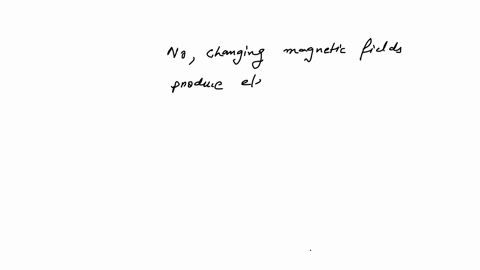 No, changing magnetic fields
produce el